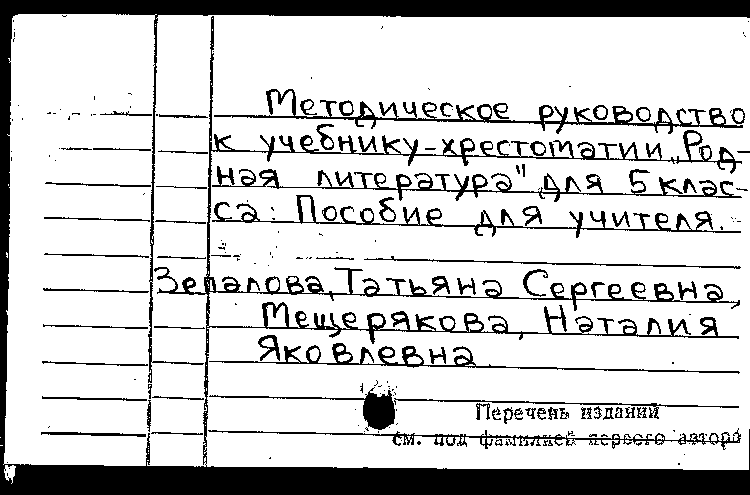 Методическое руководство
к учебнику-хрестоматии „Род-
ная литература" для 5 клас-
са: Пособие для учителя.-
Зепалова, Татьяна Сергеевна,
Мещерякова, Наталия
Яковлевна
Перечень изданий
см. под фамилией первого автора